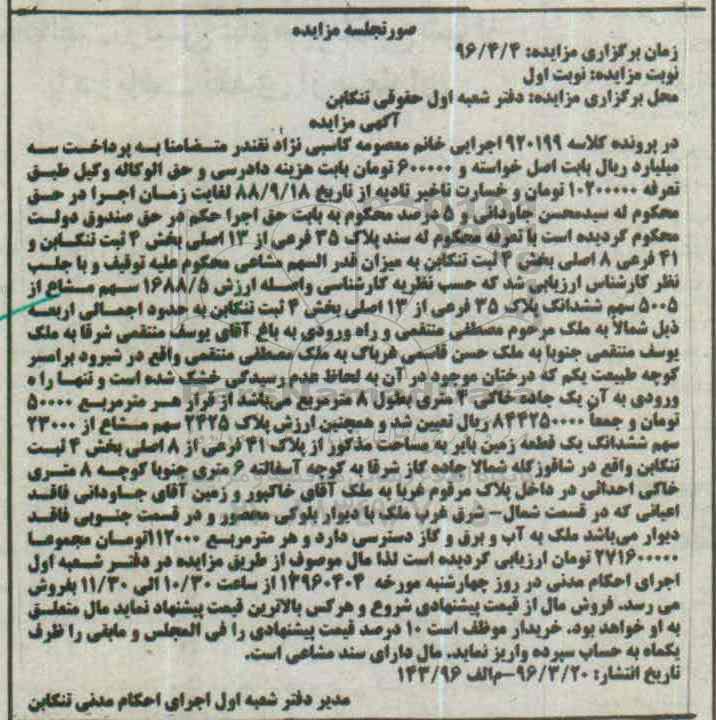 صورتجلسه مزایده
زمان برگزاری مزایده: ۹۶/۴/۴
نوبت مزایده: نوبت اول
محل برگزاری مزایده: دفتر شعبه اول حقوقی تنکابن
آگهی مزایده
در پرونده کلاسه ۹۲۰۱۹۹ اجرایی خانم معصومه کاسبی نژاد نقندر متضامنا به پرداخت سه
میلیارد ریال بابت اصل خواسته و ۶۰۰۰۰۰ تومان بابت هزینه دادرسی و حق الوکاله وکیل طبق
تعرفه ۱۰۲۰۰۰۰۰ تومان و خسارت تاخیر تادیه از تاریخ ۸۸/۹/۱۸ لغایت زمان اجرا در حق
محکوم له سیدمحسن جاودانی و ۵ درصد محکوم به بابت حق اجرا حکم در حق صندوق دولت
محکوم گردیده است با تعرفه محکوم له سند پلاک ۳۵ فرعی از ۱۳ اصلی بخش ۴ ثبت تنکابن و
۴۱ فرعی ۸ اصلی بخش ۴ ثبت تنکابن به میزان قدر السهم مشاعی محکوم علیه توقیف و با جلب
نظر کارشناس ارزیابی شد که حسب نظریه کارشناسی واصله ارزش ۱۶۸۸/۵ سهم مشاع از
۵۰۰۵ سهم ششدانگ پلاک ۳۵ فرعی از ۱۳ اصلی بخش ۴ ثبت تنکابن به حدود اجمالی اربعه
ذیل شمالا به ملک مرحوم مصطفی منتقمی و راه ورودی به باغ آقای یوسف منتقمی شرقا به ملک
یوسف منتقمی جنوبا به ملک حسن قاسمی غرباک به ملک مصطفی منتقمی واقع در شیرود برامسر
کوچه طبیعت یکم که درختان موجود در آن به لحاظ عدم رسیدگی خشک شده است و تنها راه
ورودی به آن یک جاده خاکی ۴ متری بطول ۸ مترمربع می‌باشد از قرار هر مترمربع ۵۰۰۰۰
تومان و جمعاً ۸۴۴۲۵۰۰۰۰ ریال تعیین شد و همچنین ارزش پلاک ۲۴۲۵ سهم مشاع از ۲۳۰۰۰
سهم ششدانگ یک قطعه زمین بایر به مساحت مذکور از پلاک ۴۱ فرعی از ۸ اصلی بخش ۴ ثبت
تنکابن واقع در شاقوزکله شمالا جاده گاز شرقا به کوچه آسفالته ۶ متری جنوبا کوچه ۸ متری
خاکی احداثی در داخل پلاک مرقوم غربا به ملک آقای خاکپور و زمین آقای جاودانی فاقد
اعیانی که در قسمت شمال-شرق غرب ملک با دیوار بلوکی محصور و در قسمت جنوبی فاقد
دیوار می‌باشد ملک به آب و برق و گاز دسترسی دارد و هر مترمربع ۱۱۲۰۰۰تومان مجموعا
۲۷۱۶۰۰۰۰۰ تومان ارزیابی گردیده است لذا مال موصوف از طریق مزایده در دفتر شعبه اول
اجرای احکام مدنی در روز چهارشنبه مورخه ۱۳۹۶۰۴۰۴ از ساعت ۱۰/۳۰ الی ۱۱/۳۰ بفروش
می رسد. فروش مال از قیمت پیشنهادی شروع و هرکس بالاترین قیمت پیشنهاد نماید مال متعلق
به او خواهد بود. خریدار موظف است ۱۰ درصد قیمت پیشنهادی را فی المجلس و مابقی را ظرف
یکماه به حساب سپرده واریز نماید. مال دارای سند مشاعی است.
تاریخ انتشار: ۹۶/۳/۲۰-م‌الف ۱۴۳/۹۶
مدیر دفتر شعبه اول اجرای احکام مدنی تنکابن